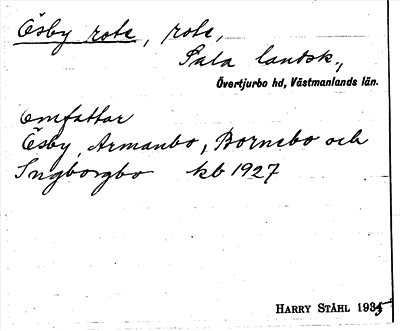 Ösby rote, rote,
Sala landsk.,
Övertjurbo hd, Västmanlands län.
omfattar
Ösby, Armanbo, Bornebo och
Ingborgbo kb 1927
HARRY STÅHL 1935